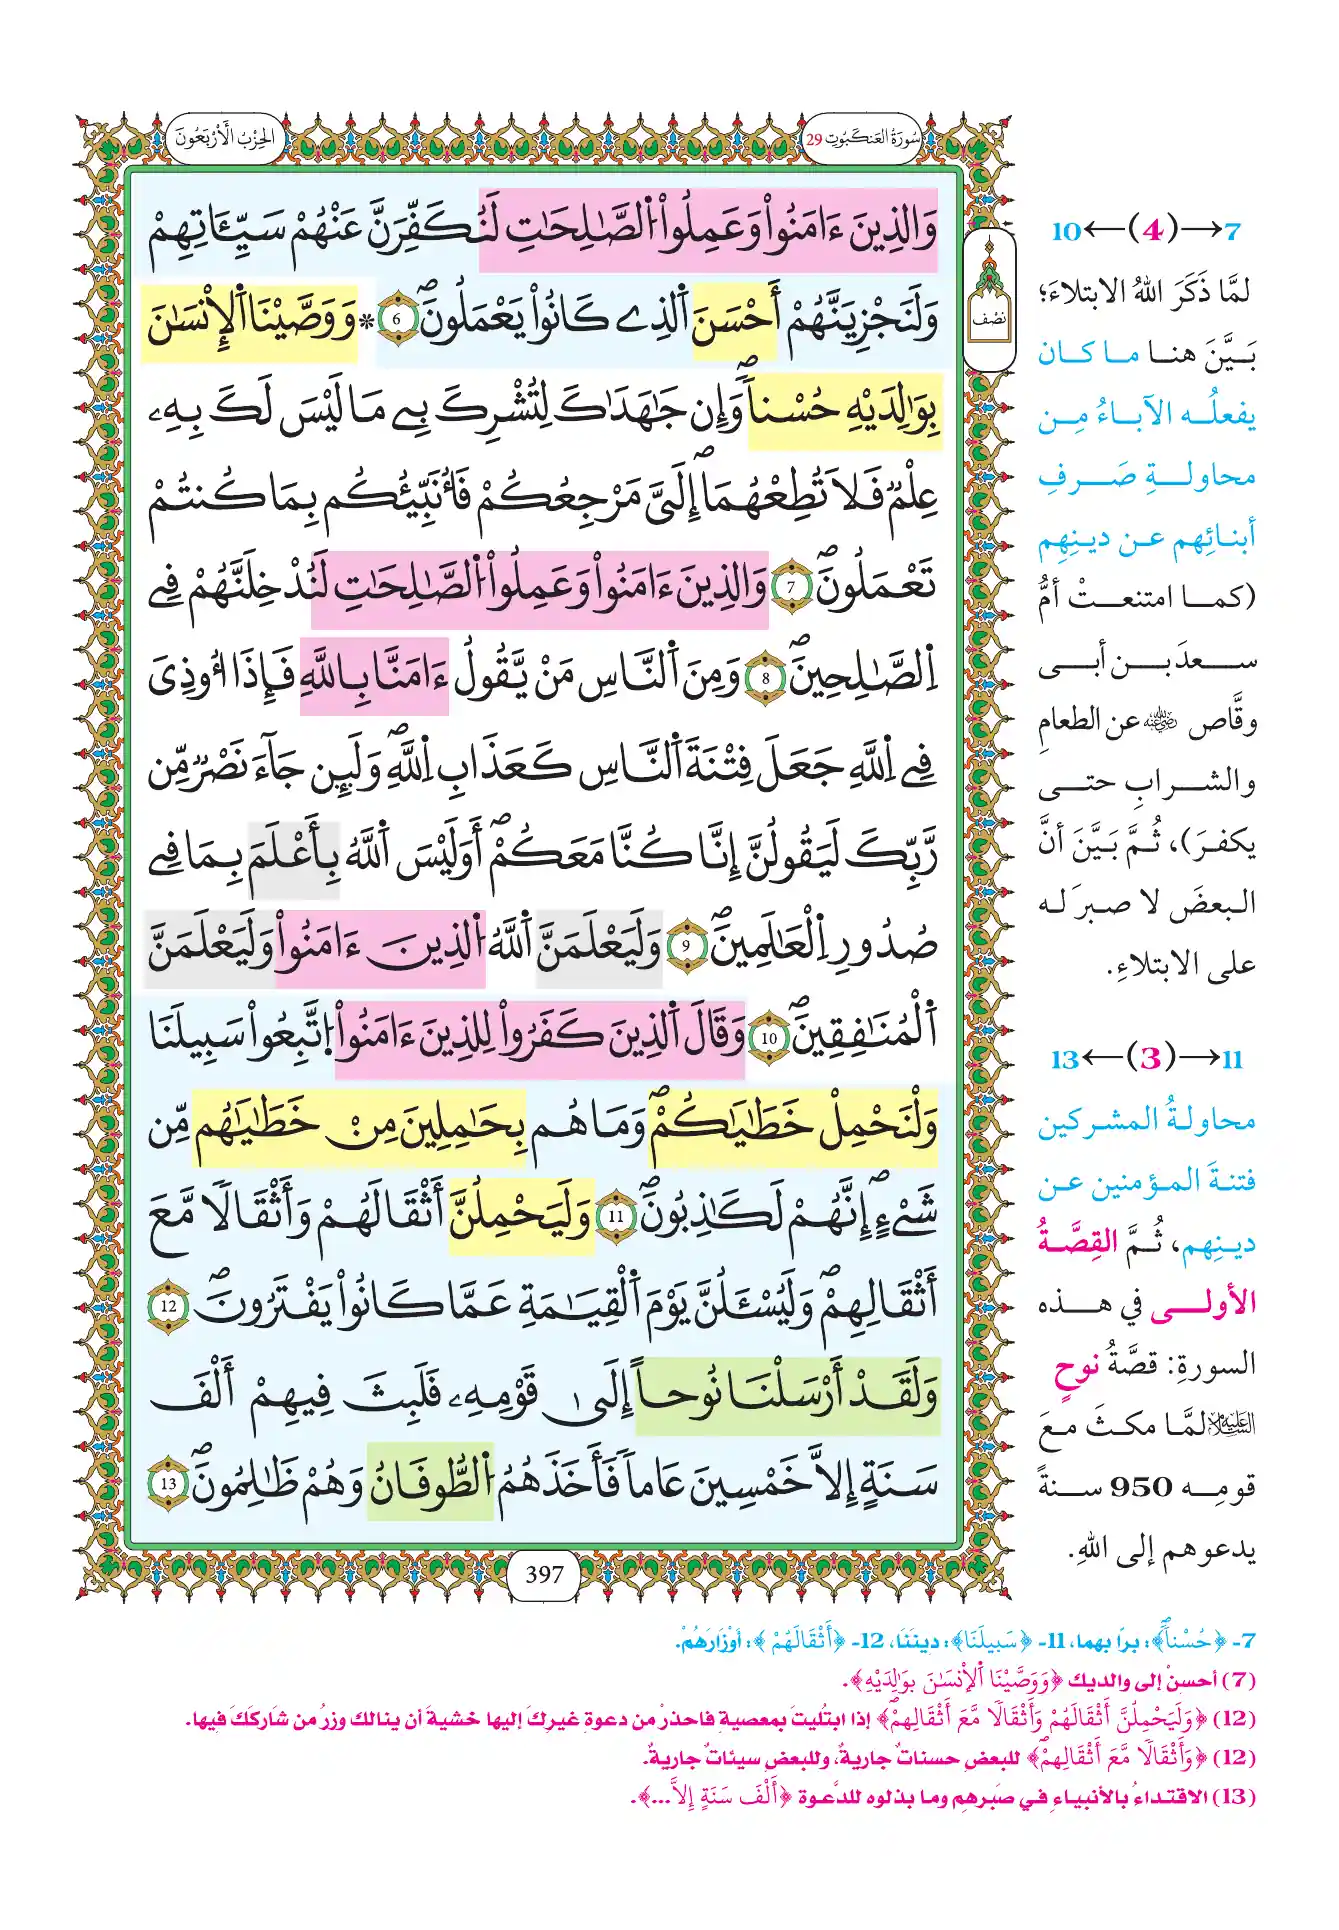 سُورَةُ العَنكَبُوتِ 29
الحِزْبُ الَارْبَعُونَ
وَالذِينَ ءَامَنُواْ وَعَمِلُواْ اُلصَّٰلِحَٰتِ لَنُكَفِّرَنَّ عَنْهُمْ سَيِّـَٔاتِهِمْ
وَلَنَجْزِيَنَّهُمْ أَحْسَنَ اَلذِے كَانُواْ يَعْمَلُونَۖ 6 * وَوَصَّيْنَا اَلِانْسَٰنَ
بِوَٰلِدَيْهِ حُسْناٗۖ وَإِن جَٰهَدَاكَ لِتُشْرِكَ بِے مَا لَيْسَ لَكَ بِهِۦ
عِلْمٞ فَلَا تُطِعْهُمَاۖ إِلَيَّ مَرْجِعُكُمْ فَأُنَبِّئُكُم بِمَا كُنتُمْ
تَعْمَلُونَۖ 7 وَالذِينَ ءَامَنُواْ وَعَمِلُواْ اُلصَّٰلِحَٰتِ لَنُدْخِلَنَّهُمْ فِے
اِلصَّٰلِحِينَۖ 8 وَمِنَ اَلنَّاسِ مَنْ يَّقُولُ ءَامَنَّا بِاللَّهِ فَإِذَا أُوذِيَ
فِے اِللَّهِ جَعَلَ فِتْنَةَ اَلنَّاسِ كَعَذَابِ اِللَّهِۖ وَلَئِن جَآءَ نَصْرٞ مِّن
رَّبِّكَ لَيَقُولُنَّ إِنَّا كُنَّا مَعَكُمْۖ أَوَلَيْسَ اَللَّهُ بِأَعْلَمَ بِمَا فِے
صُدُورِ اِلْعَٰلَمِينَۖ 9 وَلَيَعْلَمَنَّ اَللَّهُ اُلذِينَ ءَامَنُواْ وَلَيَعْلَمَنَّ
اَلْمُنَٰفِقِينَۖ 10 وَقَالَ اَلذِينَ كَفَرُواْ لِلذِينَ ءَامَنُواْ اُ۪تَّبِعُواْ سَبِيلَنَا
وَلْنَحْمِلْ خَطَٰيَٰكُمْۖ وَمَا هُم بِحَٰمِلِينَ مِنْ خَطَٰيَٰهُم مِّن
شَےْءٍۖ إِنَّهُمْ لَكَٰذِبُونَۖ 11 وَلَيَحْمِلُنَّ أَثْقَالَهُمْ وَأَثْقَالٗا مَّعَ
أَثْقَالِهِمْۖ وَلَيُسْـَٔلُنَّ يَوْمَ اَلْقِيَٰمَةِ عَمَّا كَانُواْ يَفْتَرُونَۖ 12
وَلَقَدْ أَرْسَلْنَا نُوحاً إِلَىٰ قَوْمِهِۦ فَلَبِثَ فِيهِمْ أَلْفَ
سَنَةٍ إِلاَّ خَمْسِينَ عَاماٗ فَأَخَذَهُمُ اُلطُّوفَانُ وَهُمْ ظَٰلِمُونَۖ 13
397
نصْف
7→(4)←10
لمَّا ذَكَرَ اللهُ الابتلاءَ؛
بَيَّنَ هنا ما كان
يفعلُه الآباءُ مِن
محاولةِ صَرفِ
أبنائِهم عن دينِهِم
(كما امتنعتْ أمُّ
سعدَ بن أبي
وقَّاص ﵁ عن الطعامِ
والشرابِ حتى
يكفرَ)، ثُمَّ بَيَّنَ أنَّ
البعضَ لا صبرَ له
على الابتلاءِ.
11→(3)←13
محاولةُ المشركين
فتنةَ المؤمنين عن
دينِهم، ثُمَّ القِصَّةُ
الأولى في هذه
السورةِ: قصَّةُ نوحٍ
عليه السلام لمَّا مكثَ معَ
قومِه 950 سنةً
يدعوهم إلى اللهِ.
7- ﴿حُسْناٗۖ﴾: برًا بهما، 11- ﴿سَبِيلَنَا﴾: دينَنَا، 12- ﴿أَثْقَالَهُمْ﴾: أوْزَارَهُمْ.
(7) أحسنْ إلى والديك ﴿وَوَصَّيْنَا اَلِانْسَٰنَ بِوَٰلِدَيْهِ﴾.
(12) ﴿وَلَيَحْمِلُنَّ أَثْقَالَهُمْ وَأَثْقَالٗا مَّعَ أَثْقَالِهِمْۖ﴾ إذا ابتُليتَ بمعصيةٍ فاحذرْ من دعوةِ غيرِكَ إليها خشيةَ أن ينالك وزرُ من شاركَكَ فيها.
(12) ﴿وَأَثْقَالٗا مَّعَ أَثْقَالِهِمْۖ﴾ للبعضِ حسناتٌ جاريةٌ، وللبعضِ سيئاتٌ جاريةٌ.
(13) الاقتداءُ بالأنبياءِ في صَبرِهِم وما بذلوه للدَّعوة ﴿أَلْفَ سَنَةٍ إِلاَّ...﴾.